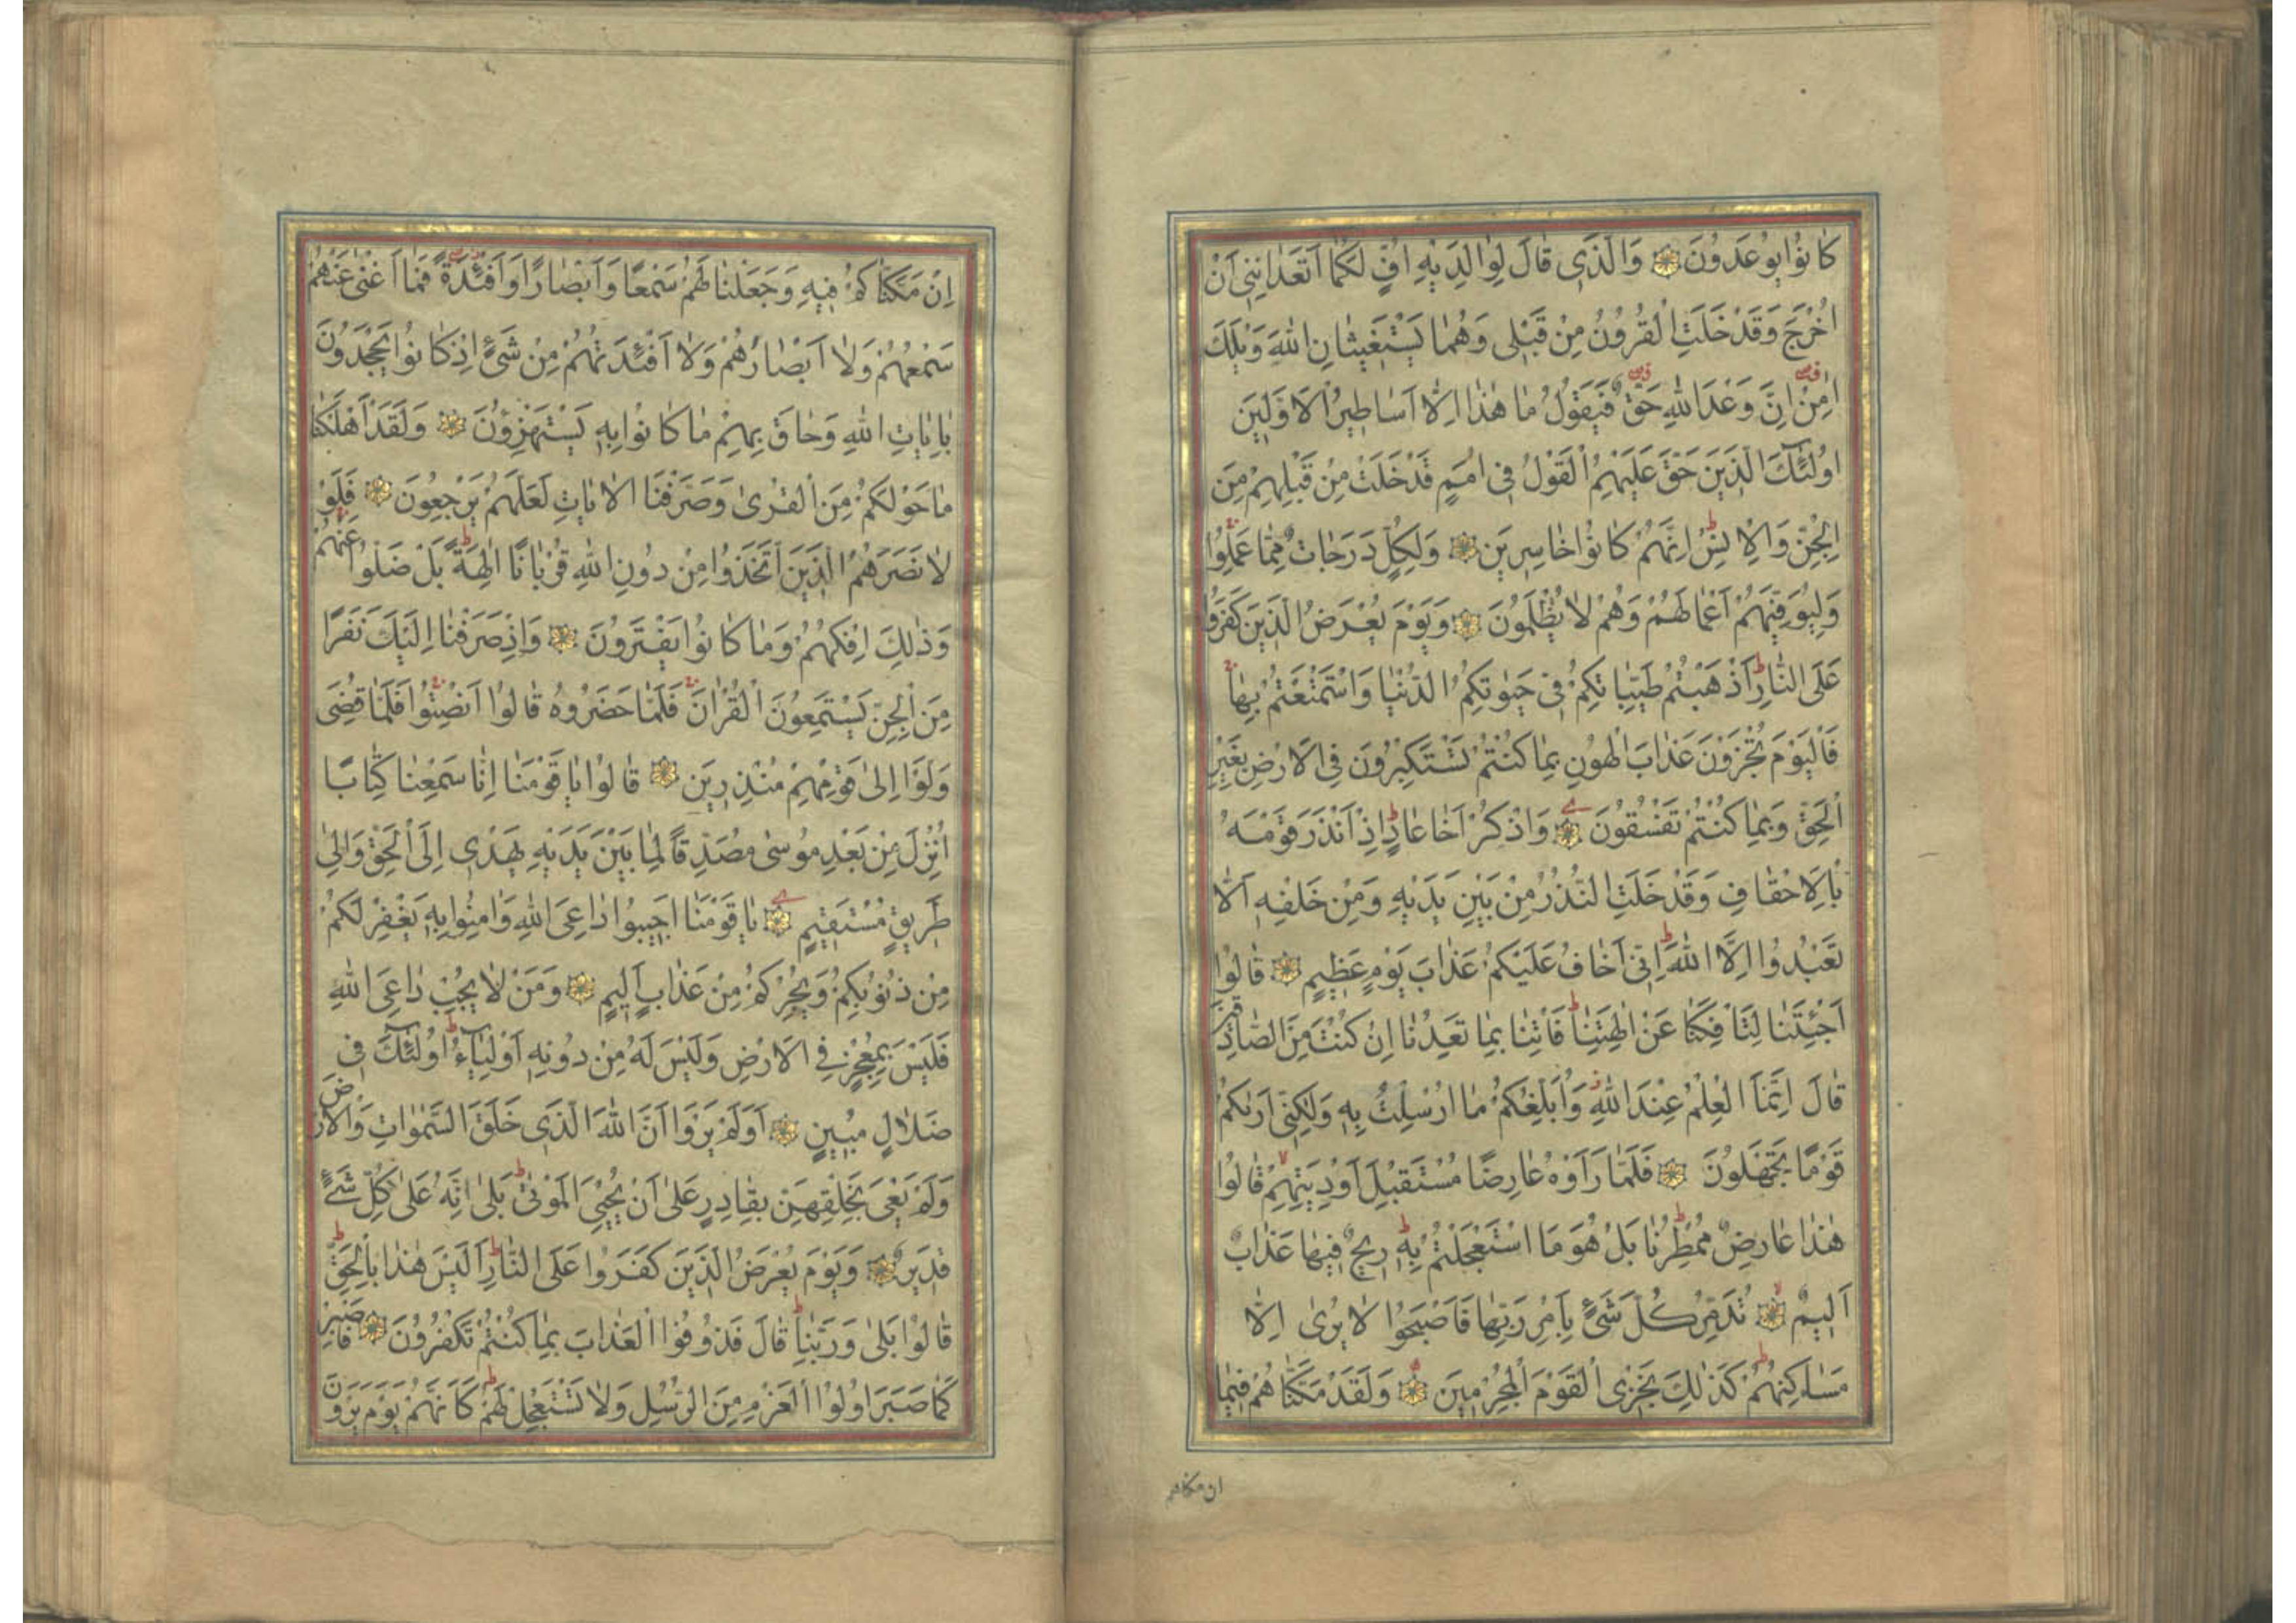 كَانُوا يُوعَدُونَ وَالَّذِي قَالَ لِوَالِدَيْهِ اُفٍّ لَكُمَا اَتَعِدَانِنِي اَنْ
اُخْرَجَ وَقَدْ خَلَتِ الْقُرُونُ مِنْ قَبْلِي وَهُمَا يَسْتَغِيثَانِ اللّٰهَ وَيْلَكَ
اٰمِنْ اِنَّ وَعْدَ اللّٰهِ حَقٌّ فَيَقُولُ مَا هٰذَا اِلَّا اَسَاطِيرُ الْاَوَّلِينَ
اُولٰئِكَ الَّذِينَ حَقَّ عَلَيْهِمُ الْقَوْلُ فِي اُمَمٍ قَدْ خَلَتْ مِنْ قَبْلِهِمْ مِنَ
الْجِنِّ وَالْاِنْسِ اِنَّهُمْ كَانُوا خَاسِرِينَ وَلِكُلٍّ دَرَجَاتٌ مِمَّا عَمِلُوا
وَلِيُوَفِّيَهُمْ اَعْمَالَهُمْ وَهُمْ لَا يُظْلَمُونَ وَيَوْمَ يُعْرَضُ الَّذِينَ كَفَرُوا
عَلَى النَّارِ اَذْهَبْتُمْ طَيِّبَاتِكُمْ فِي حَيٰوتِكُمُ الدُّنْيَا وَاسْتَمْتَعْتُمْ بِهَا
فَالْيَوْمَ تُجْزَوْنَ عَذَابَ الْهُونِ بِمَا كُنْتُمْ تَسْتَكْبِرُونَ فِي الْاَرْضِ بِغَيْرِ
الْحَقِّ وَبِمَا كُنْتُمْ تَفْسُقُونَ وَاذْكُرْ اَخَا عَادٍ اِذْ اَنْذَرَ قَوْمَهُ
بِالْاَحْقَافِ وَقَدْ خَلَتِ النُّذُرُ مِنْ بَيْنِ يَدَيْهِ وَمِنْ خَلْفِهِ اَلَّا
تَعْبُدُوا اِلَّا اللّٰهَ اِنِّي اَخَافُ عَلَيْكُمْ عَذَابَ يَوْمٍ عَظِيمٍ قَالُوا
اَجِئْتَنَا لِتَاْفِكَنَا عَنْ اٰلِهَتِنَا فَاْتِنَا بِمَا تَعِدُنَا اِنْ كُنْتَ مِنَ الصَّادِقِينَ
قَالَ اِنَّمَا الْعِلْمُ عِنْدَ اللّٰهِ وَاُبَلِّغُكُمْ مَا اُرْسِلْتُ بِهِ وَلٰكِنِّي اَرٰيكُمْ
قَوْمًا تَجْهَلُونَ فَلَمَّا رَاَوْهُ عَارِضًا مُسْتَقْبِلَ اَوْدِيَتِهِمْ قَالُوا
هٰذَا عَارِضٌ مُمْطِرُنَا بَلْ هُوَ مَا اسْتَعْجَلْتُمْ بِهِ رِيحٌ فِيهَا عَذَابٌ
اَلِيمٌ تُدَمِّرُ كُلَّ شَيْءٍ بِاَمْرِ رَبِّهَا فَاَصْبَحُوا لَا يُرٰى اِلَّا
مَسَاكِنُهُمْ كَذٰلِكَ نَجْزِي الْقَوْمَ الْمُجْرِمِينَ وَلَقَدْ مَكَّنَّاهُمْ فِيمَا
ان مكناكم
اِنْ مَكَّنَّاكُمْ فِيهِ وَجَعَلْنَا لَهُمْ سَمْعًا وَاَبْصَارًا وَاَفْئِدَةً فَمَا اَغْنٰى عَنْهُمْ
سَمْعُهُمْ وَلَا اَبْصَارُهُمْ وَلَا اَفْئِدَتُهُمْ مِنْ شَيْءٍ اِذْ كَانُوا يَجْحَدُونَ
بِاٰيَاتِ اللّٰهِ وَحَاقَ بِهِمْ مَا كَانُوا بِهِ يَسْتَهْزِؤُنَ وَلَقَدْ اَهْلَكْنَا
مَا حَوْلَكُمْ مِنَ الْقُرٰى وَصَرَّفْنَا الْاٰيَاتِ لَعَلَّهُمْ يَرْجِعُونَ فَلَوْ
لَا نَصَرَهُمُ الَّذِينَ اتَّخَذُوا مِنْ دُونِ اللّٰهِ قُرْبَانًا اٰلِهَةً بَلْ ضَلُّوا عَنْهُمْ
وَذٰلِكَ اِفْكُهُمْ وَمَا كَانُوا يَفْتَرُونَ وَاِذْ صَرَفْنَا اِلَيْكَ نَفَرًا
مِنَ الْجِنِّ يَسْتَمِعُونَ الْقُرْاٰنَ فَلَمَّا حَضَرُوهُ قَالُوا اَنْصِتُوا فَلَمَّا قُضِيَ
وَلَّوْا اِلٰى قَوْمِهِمْ مُنْذِرِينَ قَالُوا يَا قَوْمَنَا اِنَّا سَمِعْنَا كِتَابًا
اُنْزِلَ مِنْ بَعْدِ مُوسٰى مُصَدِّقًا لِمَا بَيْنَ يَدَيْهِ يَهْدِي اِلَى الْحَقِّ وَاِلٰى
طَرِيقٍ مُسْتَقِيمٍ يَا قَوْمَنَا اَجِيبُوا دَاعِيَ اللّٰهِ وَاٰمِنُوا بِهِ يَغْفِرْ لَكُمْ
مِنْ ذُنُوبِكُمْ وَيُجِرْكُمْ مِنْ عَذَابٍ اَلِيمٍ وَمَنْ لَا يُجِبْ دَاعِيَ اللّٰهِ
فَلَيْسَ بِمُعْجِزٍ فِي الْاَرْضِ وَلَيْسَ لَهُ مِنْ دُونِهِ اَوْلِيَاءُ اُولٰئِكَ فِي
ضَلَالٍ مُبِينٍ اَوَلَمْ يَرَوْا اَنَّ اللّٰهَ الَّذِي خَلَقَ السَّمٰوَاتِ وَالْاَرْضَ
وَلَمْ يَعْيَ بِخَلْقِهِنَّ بِقَادِرٍ عَلٰى اَنْ يُحْيِيَ الْمَوْتٰى بَلٰى اِنَّهُ عَلٰى كُلِّ شَيْءٍ
قَدِيرٌ وَيَوْمَ يُعْرَضُ الَّذِينَ كَفَرُوا عَلَى النَّارِ اَلَيْسَ هٰذَا بِالْحَقِّ
قَالُوا بَلٰى وَرَبِّنَا قَالَ فَذُوقُوا الْعَذَابَ بِمَا كُنْتُمْ تَكْفُرُونَ فَاصْبِرْ
كَمَا صَبَرَ اُولُوا الْعَزْمِ مِنَ الرُّسُلِ وَلَا تَسْتَعْجِلْ لَهُمْ كَاَنَّهُمْ يَوْمَ يَرَوْنَ